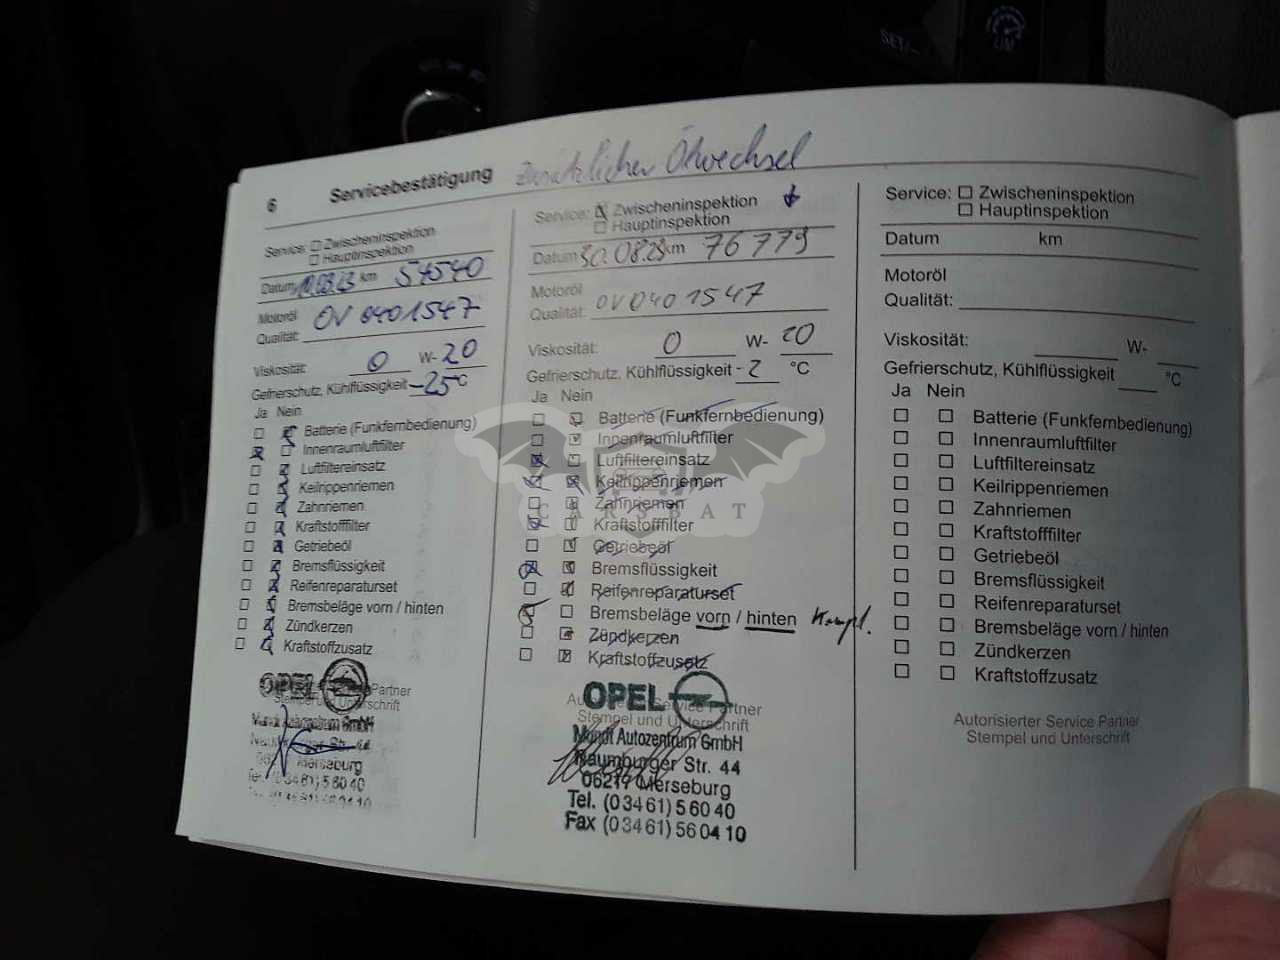 SET/-
LIM
6 Servicebestätigung Zusätzlicher Ölwechsel
Service: Zwischeninspektion
Hauptinspektion
Datum 10.03.23 km 54540
Motoröl
Qualität: OV 0401547
Viskosität: 0 W- 20
Gefrierschutz, Kühlflüssigkeit -25 °C
Ja Nein
Batterie (Funkfernbedienung)
Innenraumluftfilter
Luftfiltereinsatz
Keilrippenriemen
Zahnriemen
Kraftstofffilter
Getriebeöl
Bremsflüssigkeit
Reifenreparaturset
Bremsbeläge vorn / hinten
Zündkerzen
Kraftstoffzusatz
OPEL
Partner
Stempel und Unterschrift
Autozentrum GmbH
Str. 44
Merseburg
Tel. (03461) 5 60 40
Service: Zwischeninspektion
Hauptinspektion
Datum 30.08.23 km 76779
Motoröl
Qualität: OV0401547
Viskosität: 0 W- 20
Gefrierschutz, Kühlflüssigkeit - 2 °C
Ja Nein
Batterie (Funkfernbedienung)
Innenraumluftfilter
Luftfiltereinsatz
Keilrippenriemen
Zahnriemen
Kraftstofffilter
Getriebeöl
Bremsflüssigkeit
Reifenreparaturset
Bremsbeläge vorn / hinten kompl.
Zündkerzen
Kraftstoffzusatz
CARSBAT
OPEL
Autorisierter Service Partner
Stempel und Unterschrift
Mundt Autozentrum GmbH
Naumburger Str. 44
06217 Merseburg
Tel. (03461) 5 60 40
Fax (03461) 56 04 10
Service: Zwischeninspektion
Hauptinspektion
Datum km
Motoröl
Qualität:
Viskosität: W-
Gefrierschutz, Kühlflüssigkeit °C
Ja Nein
Batterie (Funkfernbedienung)
Innenraumluftfilter
Luftfiltereinsatz
Keilrippenriemen
Zahnriemen
Kraftstofffilter
Getriebeöl
Bremsflüssigkeit
Reifenreparaturset
Bremsbeläge vorn / hinten
Zündkerzen
Kraftstoffzusatz
Autorisierter Service Partner
Stempel und Unterschrift